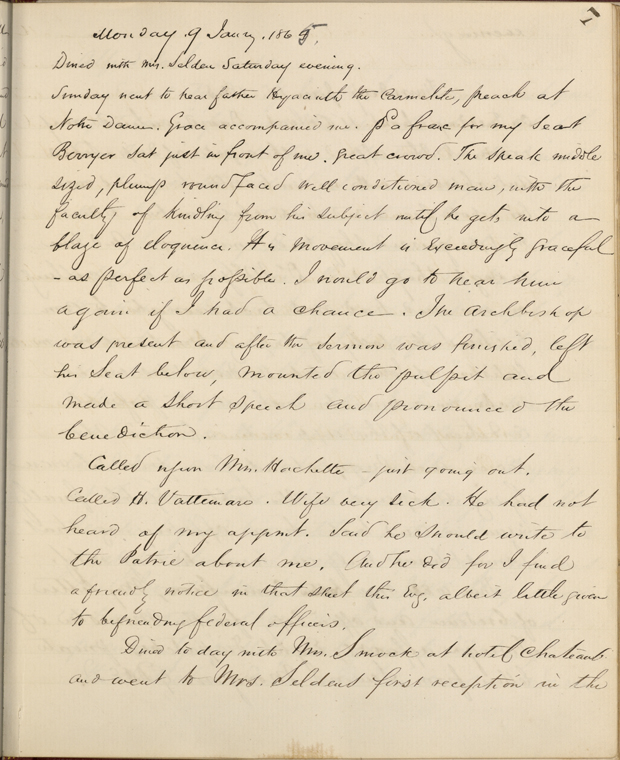 7
Monday 9 Jany. 1865.
Dined with Mrs. Selden Saturday evening.
Sunday went to hear father Hyacinth the Carmelite, preach at
Notre Dame. Grace accompanied me. Pd a franc for my Seat
Berryer Sat just in front of me. great crowd. The Speak middle
sized, plump round faced well conditioned man, with the
faculty of kindling from his subject until he gets into a
blaze of eloquence. His movement is exceedingly graceful
- as perfect as possible. I would go to hear him
again if I had a chance. The Archbishop
was present and after the Sermon was finished, left
his Seat below, mounted the pulpit and
made a short speech and pronounced the
benediction.
Called upon Mrs. Hachette - just going out.
Called H. Vattemare. Wife very sick. He had not
heard of my appmt. Said he would write to
the Patrie about me. And he did for I find
a friendly notice in that sheet this Evg. albeit little given
to befriending federal officers.
Dined to day with Mrs. Smock at hotel Chateaub
and went to Mrs. Seldens first reception in the